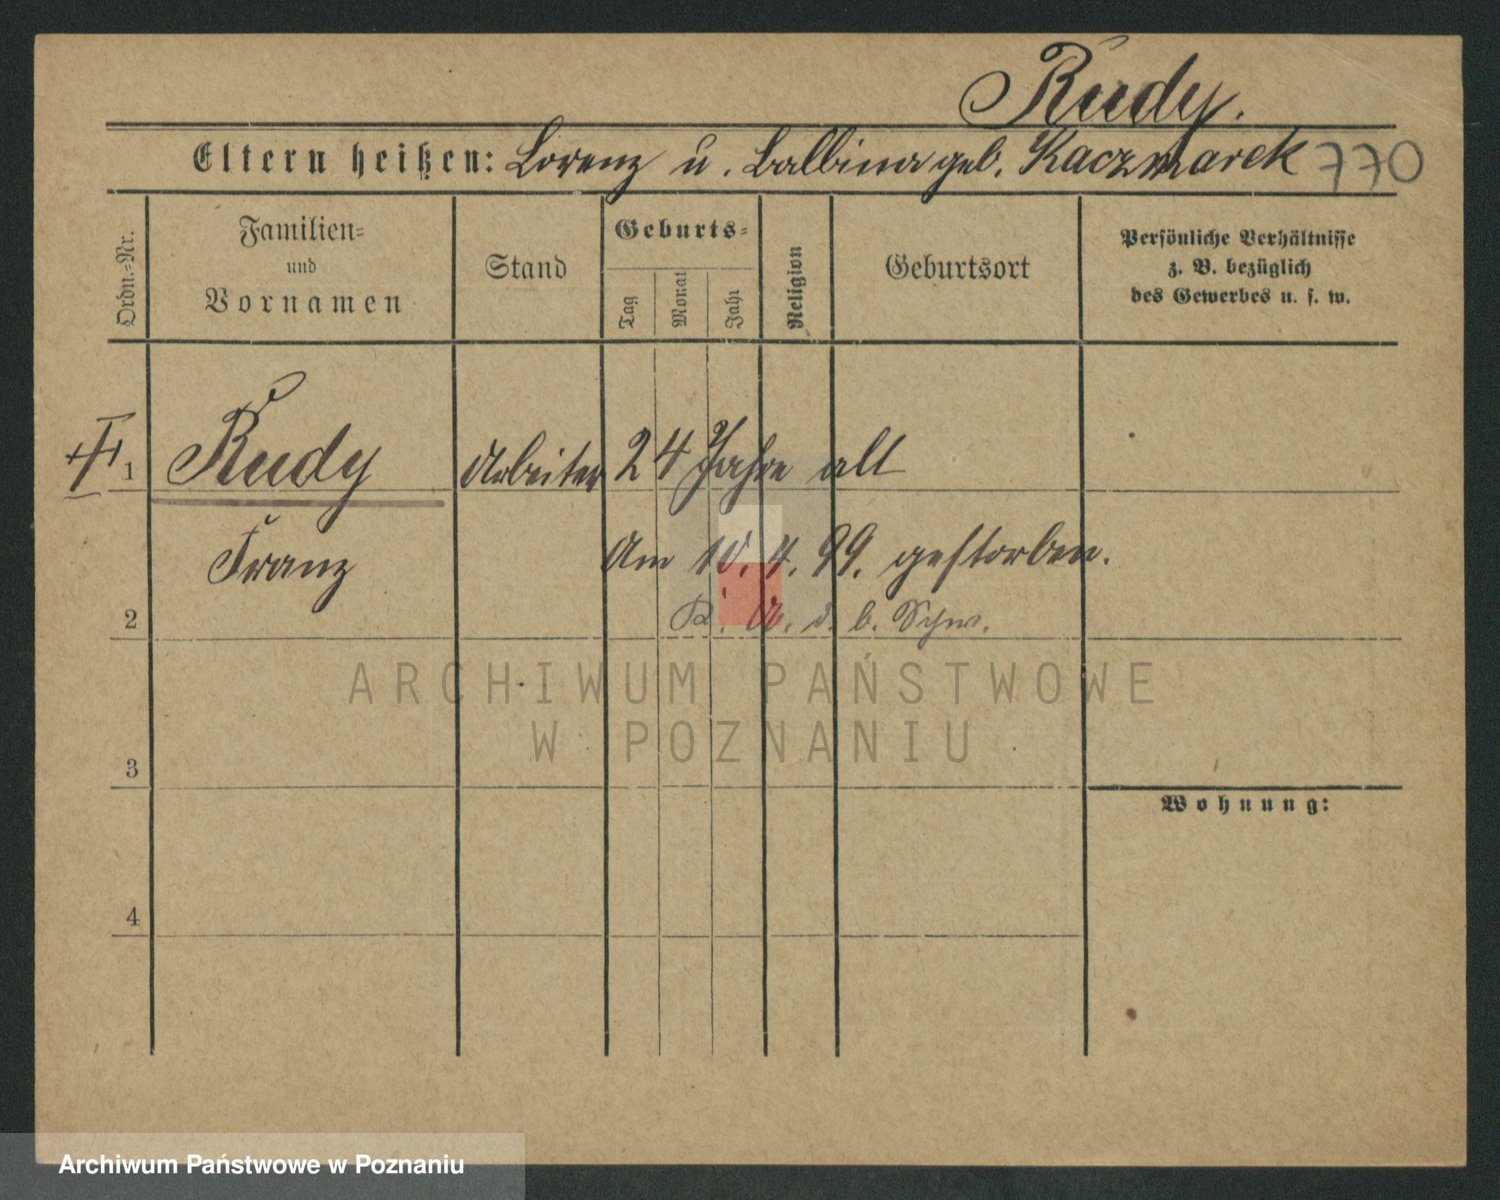 Rudy.
Eltern heißen: Lorenz u. Balbina geb. Kaczmarek 770
Ordn.=Nr.
Familien=
und
Vornamen
Stand
Geburts=
Tag
Monat
Jahr
Religion
Geburtsort
Persönliche Verhältnisse
z. B. bezüglich
des Gewerbes u. s. w.
1 Rudy Arbeiter 24 Jahre alt
Franz Am 10. 4. 99. gestorben.
2 A. d. b. Schw.
ARCHIWUM PAŃSTWOWE
W POZNANIU
3
Wohnung:
4
Archiwum Państwowe w Poznaniu